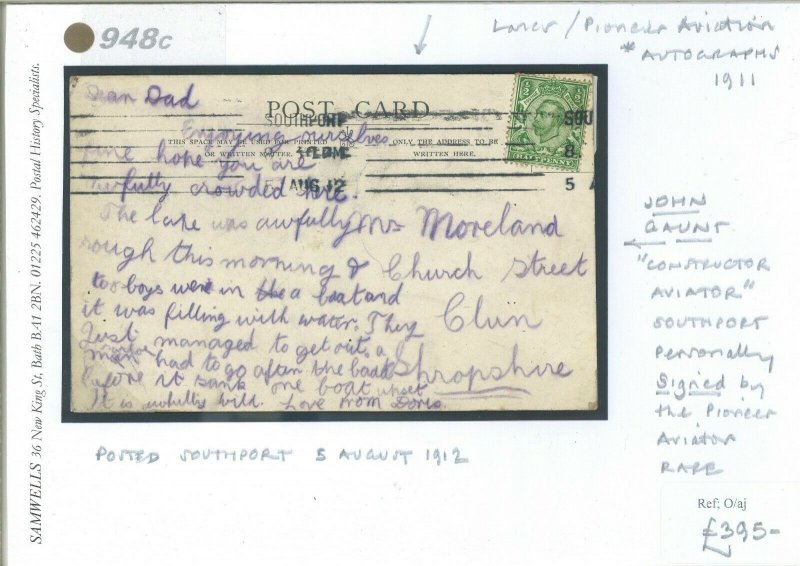 948c
Lancs / Pioneer Aviation
* AUTOGRAPHS
1911
SAMWELLS 36 New King St, Bath BA1 2BN. 01225 462429. Postal History Specialists.
POST CARD
THIS SPACE MAY BE USED FOR PRINTED
OR WRITTEN MATTER.
ONLY THE ADDRESS TO BE
WRITTEN HERE.
SOUTHPORT
AUG 12
SOU
8
5 A
HALFPENNY
Dear Dad
Enjoying ourselves
fine hope you are
fully crowded here.
The lake was awfully
rough this morning &
two boys were in a boat and
it was filling with water. They
Just managed to get out. a
man had to go after the boat
before it sank one boat upset
It is awfully wild. Love from Doris.
Mrs Moreland
Church Street
Clun
Shropshire
JOHN
GAUNT
"CONSTRUCTOR
AVIATOR"
SOUTHPORT
Personally
Signed by
the Pioneer
Aviator
RARE
POSTED SOUTHPORT 5 AUGUST 1912
Ref; O/aj
£395-